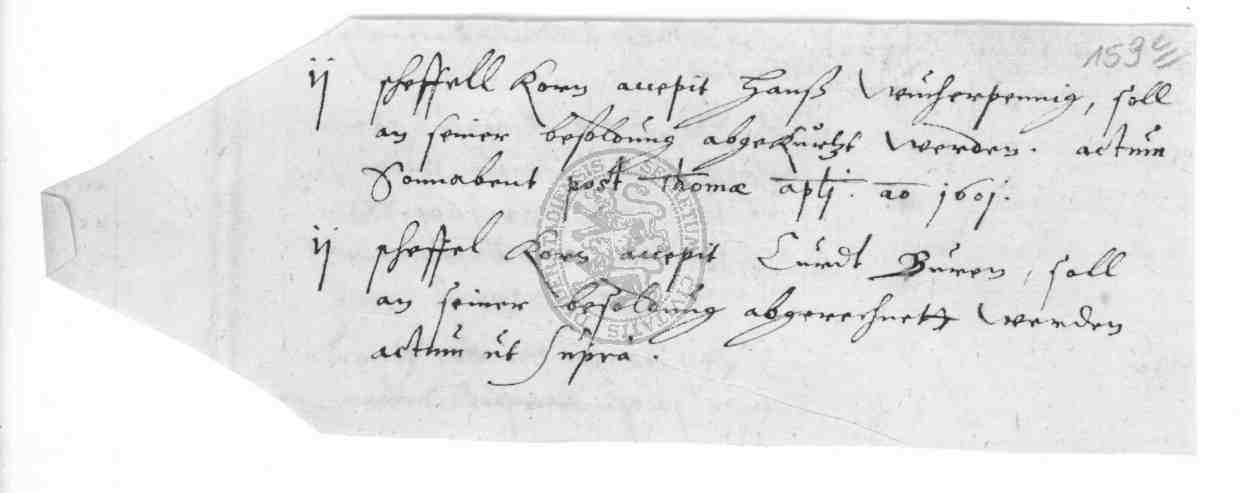 153
ij scheffell Korn accepit Hanß Wucherpennig, soll
an seiner besoldung abgekurtzt werden. actum
Sonnabent post Thomæ apli. ao 1601.
ij scheffel Korn accepit Curdt Buren, soll
an seiner besoldung abgerechnett werden
actum ut supra.